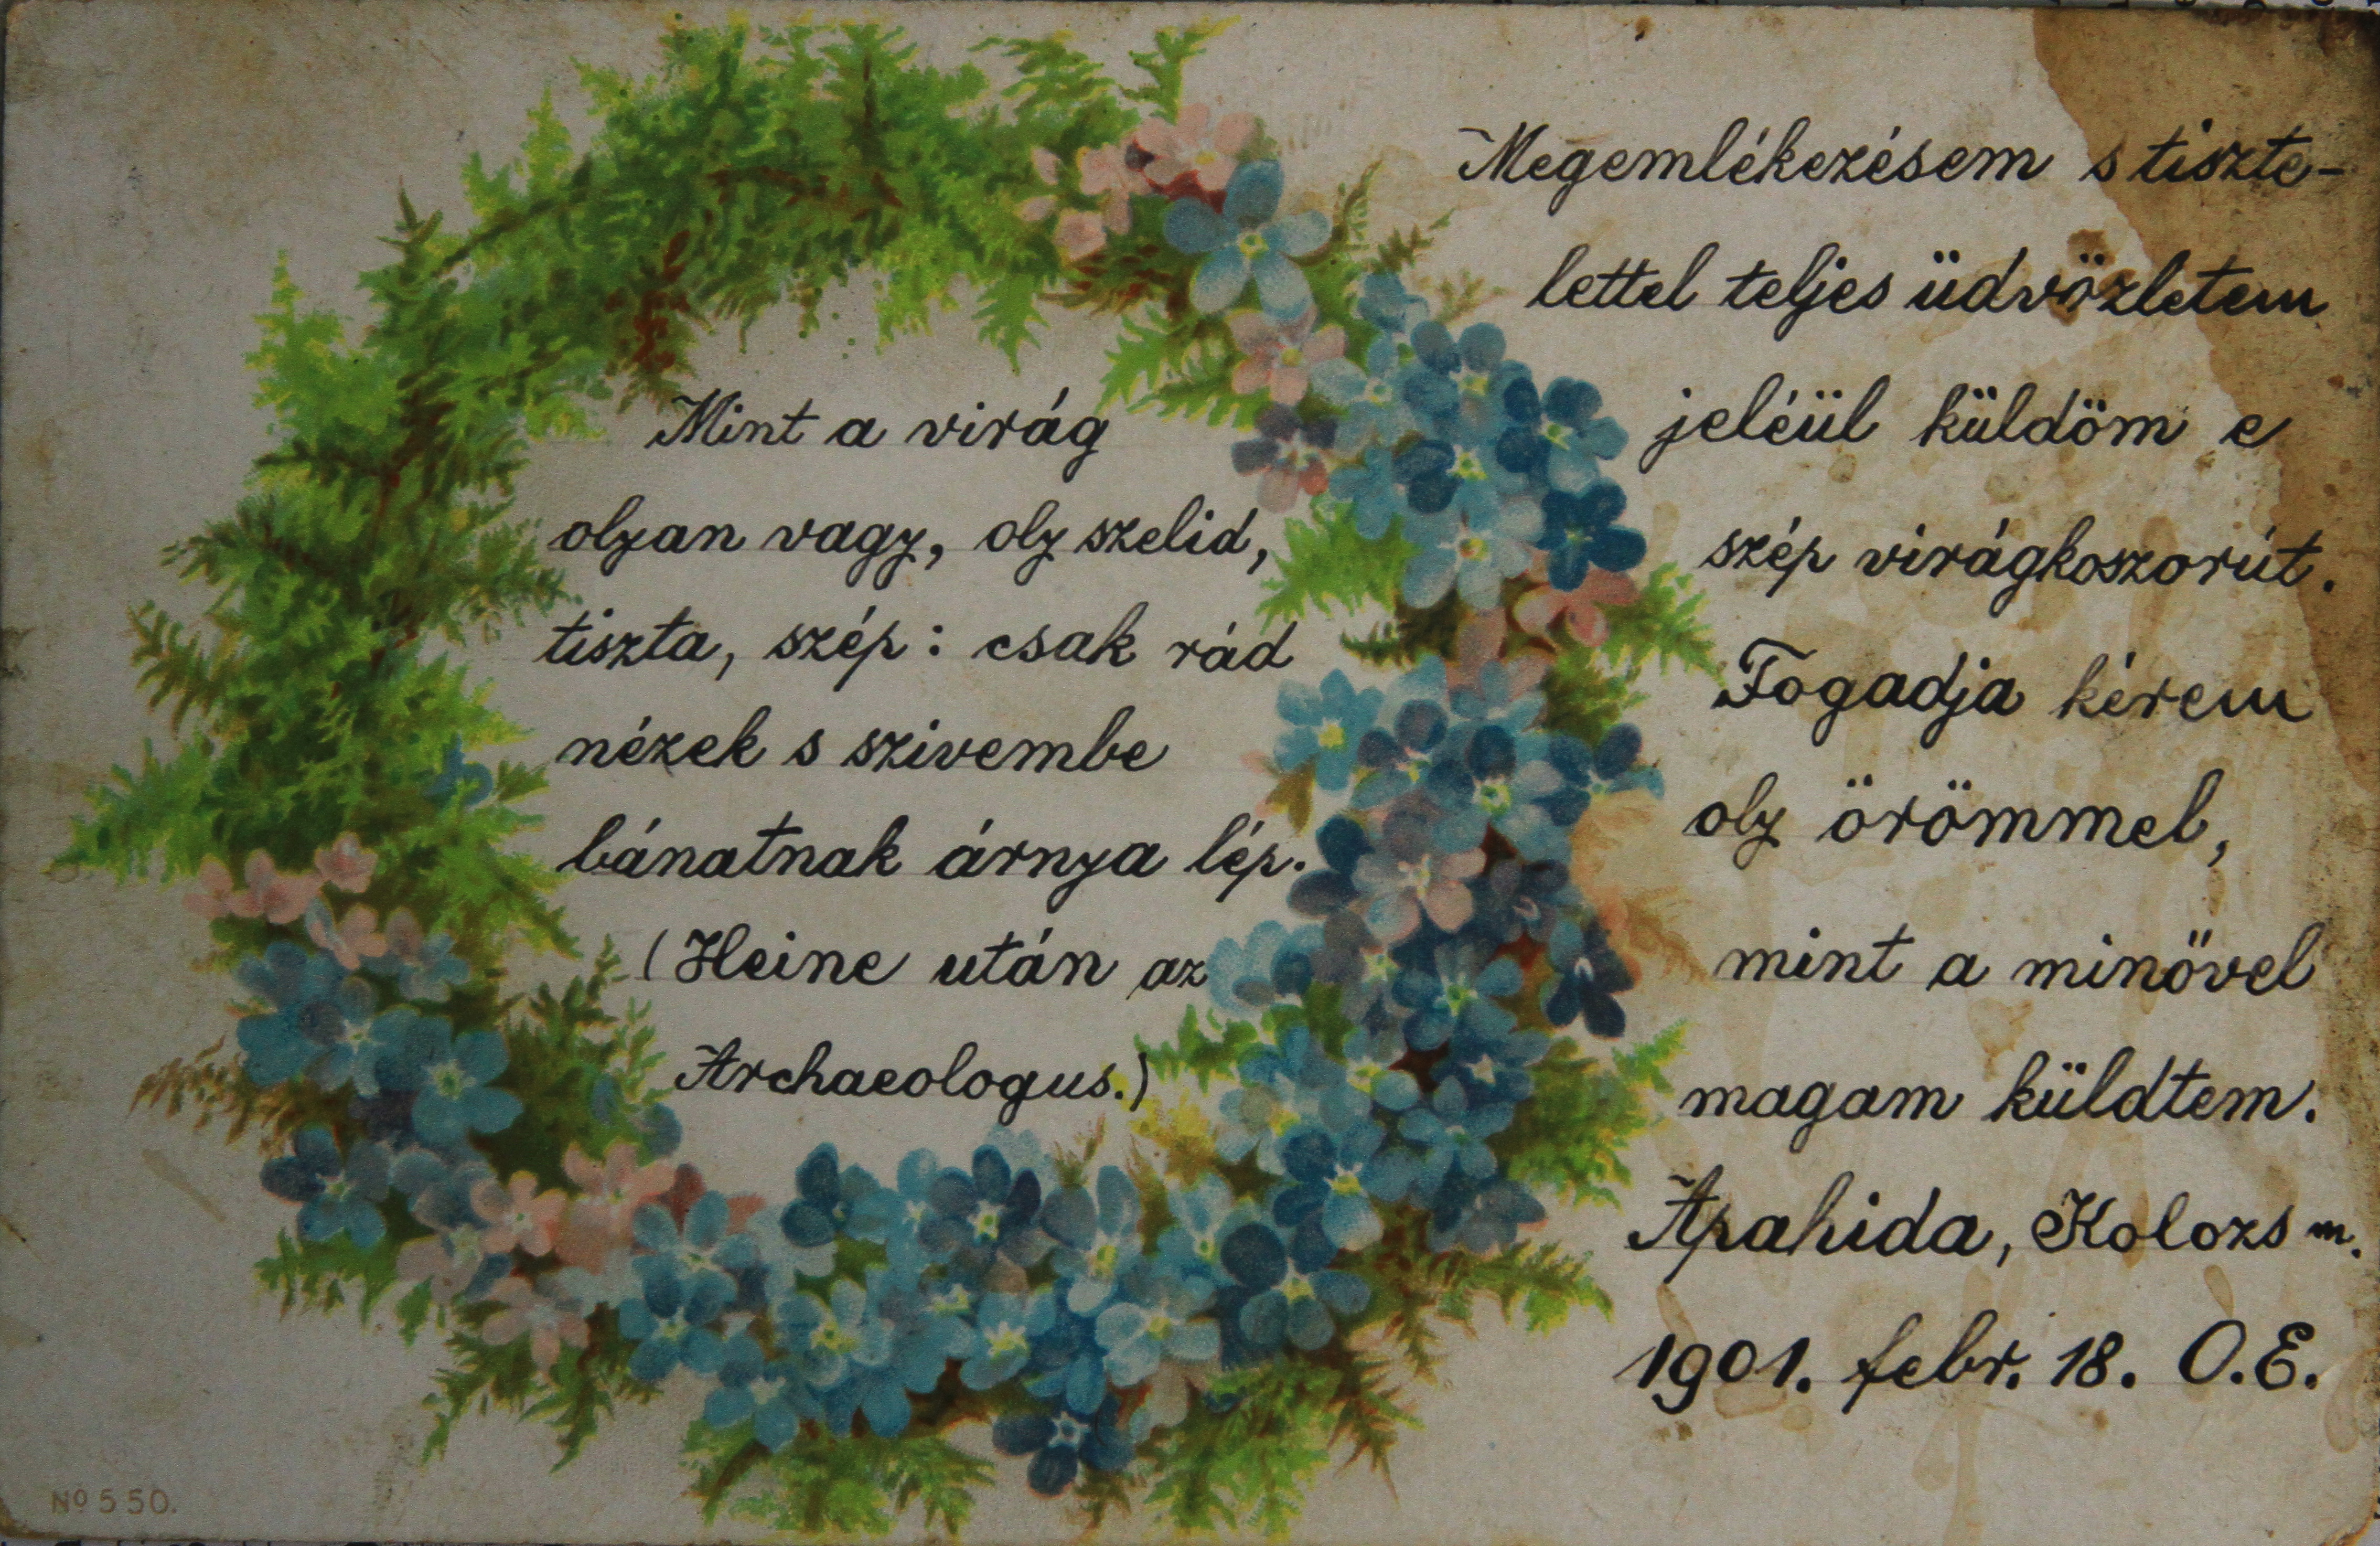 Mint a virág
olyan vagy, oly szelid,
tiszta, szép: csak rád
nézek s szivembe
bánatnak árnya lép.
(Heine után az
Archaeologus.)
Megemlékezésem s tiszte-
lettel teljes üdvözletem
jeléül küldöm e
szép virágkoszorút.
Fogadja kérem
oly örömmel,
mint a minővel
magam küldtem.
Apahida, Kolozs m.
1901. febr. 18. O.E.
No 550.